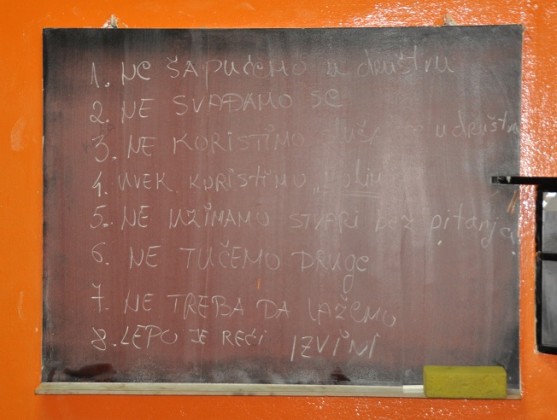 1. NE ŠAPUĆEMO u društvu
2. NE SVAĐAMO SE
3. NE KORISTIMO u društvu
4. UVEK KORISTIMO
5. NE UZIMAMO STVARI bez pitanja
6. NE TUČEMO DRUGE
7. NE TREBA DA LAŽEMO
8. LEPO JE REĆI IZVINI